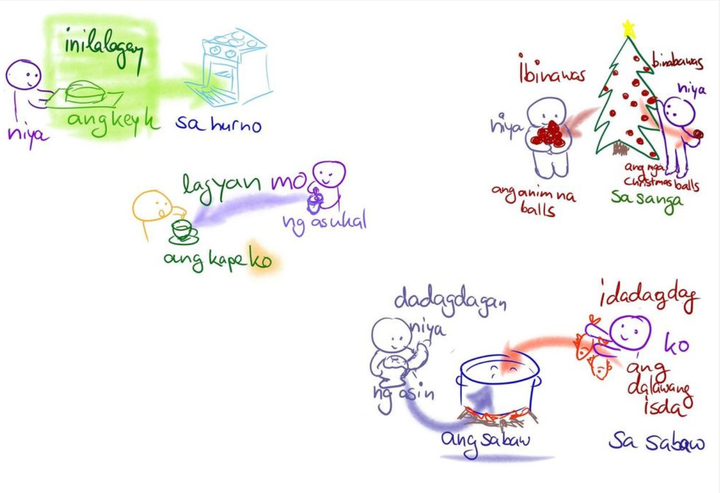 inilalagay
niya
ang keyk
sa hurno
lagyan mo
ng asukal
ang kape ko
Ibinawas
niya
ang anim na
balls
binabawas
niya
ang mga
christmas balls
sa sanga
dadagdagan
niya
ng asin
ang sabaw
idadagdag
ko
ang
dalawang
isda
sa sabaw